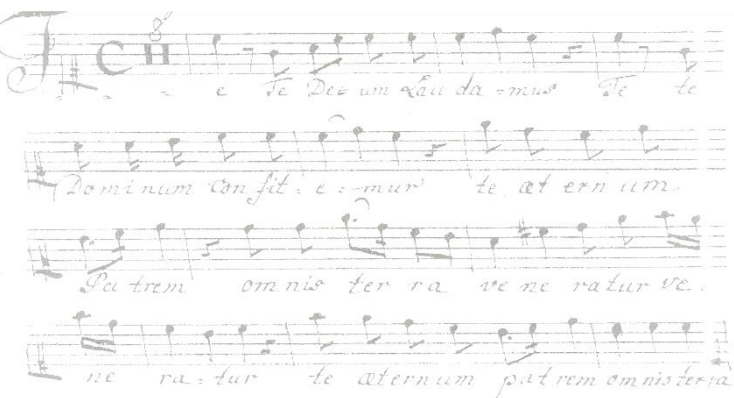 8
Te Te De=um Lau da=mus Te te
Dominum con fit=e=mur te æt ern um.
Pa trem om nis ter ra ve ne ratur ve.
ne ra=tur te æternum pat rem omnis terra